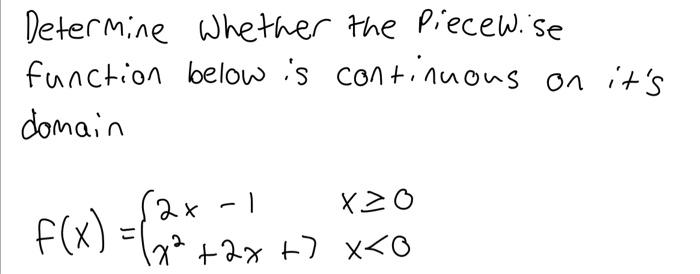 Determine whether the Piecewise
function below is continuous on it's
domain
f(x) = { 2x - 1   x ≥ 0
x² + 2x + 7   x < 0